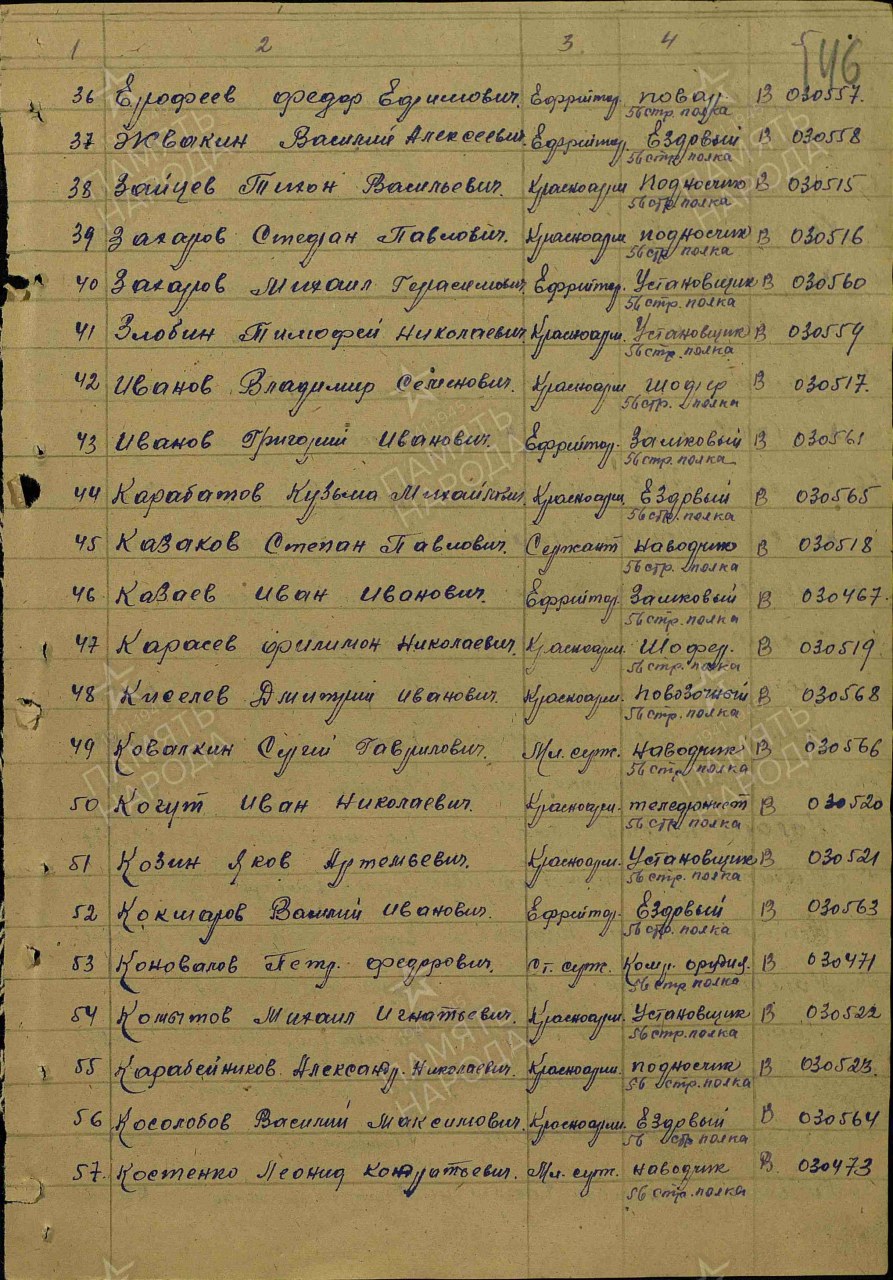 1 2 3 4 5
146
36 Ерофеев Федор Ефимович. Ефрейтор. повар В 030557.
56 стр. полка
37 Жвакин Василий Алексеевич. Ефрейтор. Ездовый В 030558
56 стр. полка
38 Зайцев Тихон Васильевич. Красноарм. Подносчик В 030515
56 стр. полка
39 Захаров Стефан Павлович. Красноарм. подносчик В 030516
56 стр. полка
40 Захаров Михаил Герасимович Ефрейтор. Установщик В 030560
56 стр. полка
41 Злобин Тимофей Николаевич Красноарм. Установщик В 030559
56 стр. полка
42 Иванов Владимир Семенович. Красноарм. Шофер В 030517.
56 стр. полка
43 Иванов Григорий Иванович. Ефрейтор. Замковый В 030561
56 стр. полка
44 Карабатов Кузьма Михайлович. Красноарм. Ездовый В 030565
56 стр. полка
45 Казаков Степан Павлович. Сержант Наводчик В 030518
56 стр. полка
46 Казаев Иван Иванович. Ефрейтор. Замковый В 030467.
56 стр. полка
47 Карасев Филимон Николаевич. Красноарм. Шофер. В 030519
56 стр. полка
48 Киселев Дмитрий Иванович. Красноарм. Повозочный В 030568
56 стр. полка
49 Ковалкин Сергей Гаврилович. Мл. серж. Наводчик В 030566
56 стр. полка
50 Когут Иван Николаевич. Красноарм. телефонист В 030520
56 стр. полка
51 Козин Яков Артемьевич. Красноарм. Установщик В 030521
56 стр. полка
52 Кокшаров Василий Иванович. Ефрейтор. Ездовый В 030563
56 стр. полка
53 Коновалов Петр. Федорович. Ст. серж. Комр. орудия. В 030471
56 стр полка
54 Копытов Михаил Игнатьевич. Красноарм. Установщик В 030522
56 стр. полка
55 Карабейников Александр. Николаевич. Красноарм. подносчик В 030523.
56 стр. полка
56 Косолобов Василий Максимович. Красноарм. Ездовый В 030564
56 стр полка
57. Костенко Леонид Кондратьевич. Мл. серж. наводчик В. 030473
56 стр. полка
ПАМЯТЬ
НАРОДА